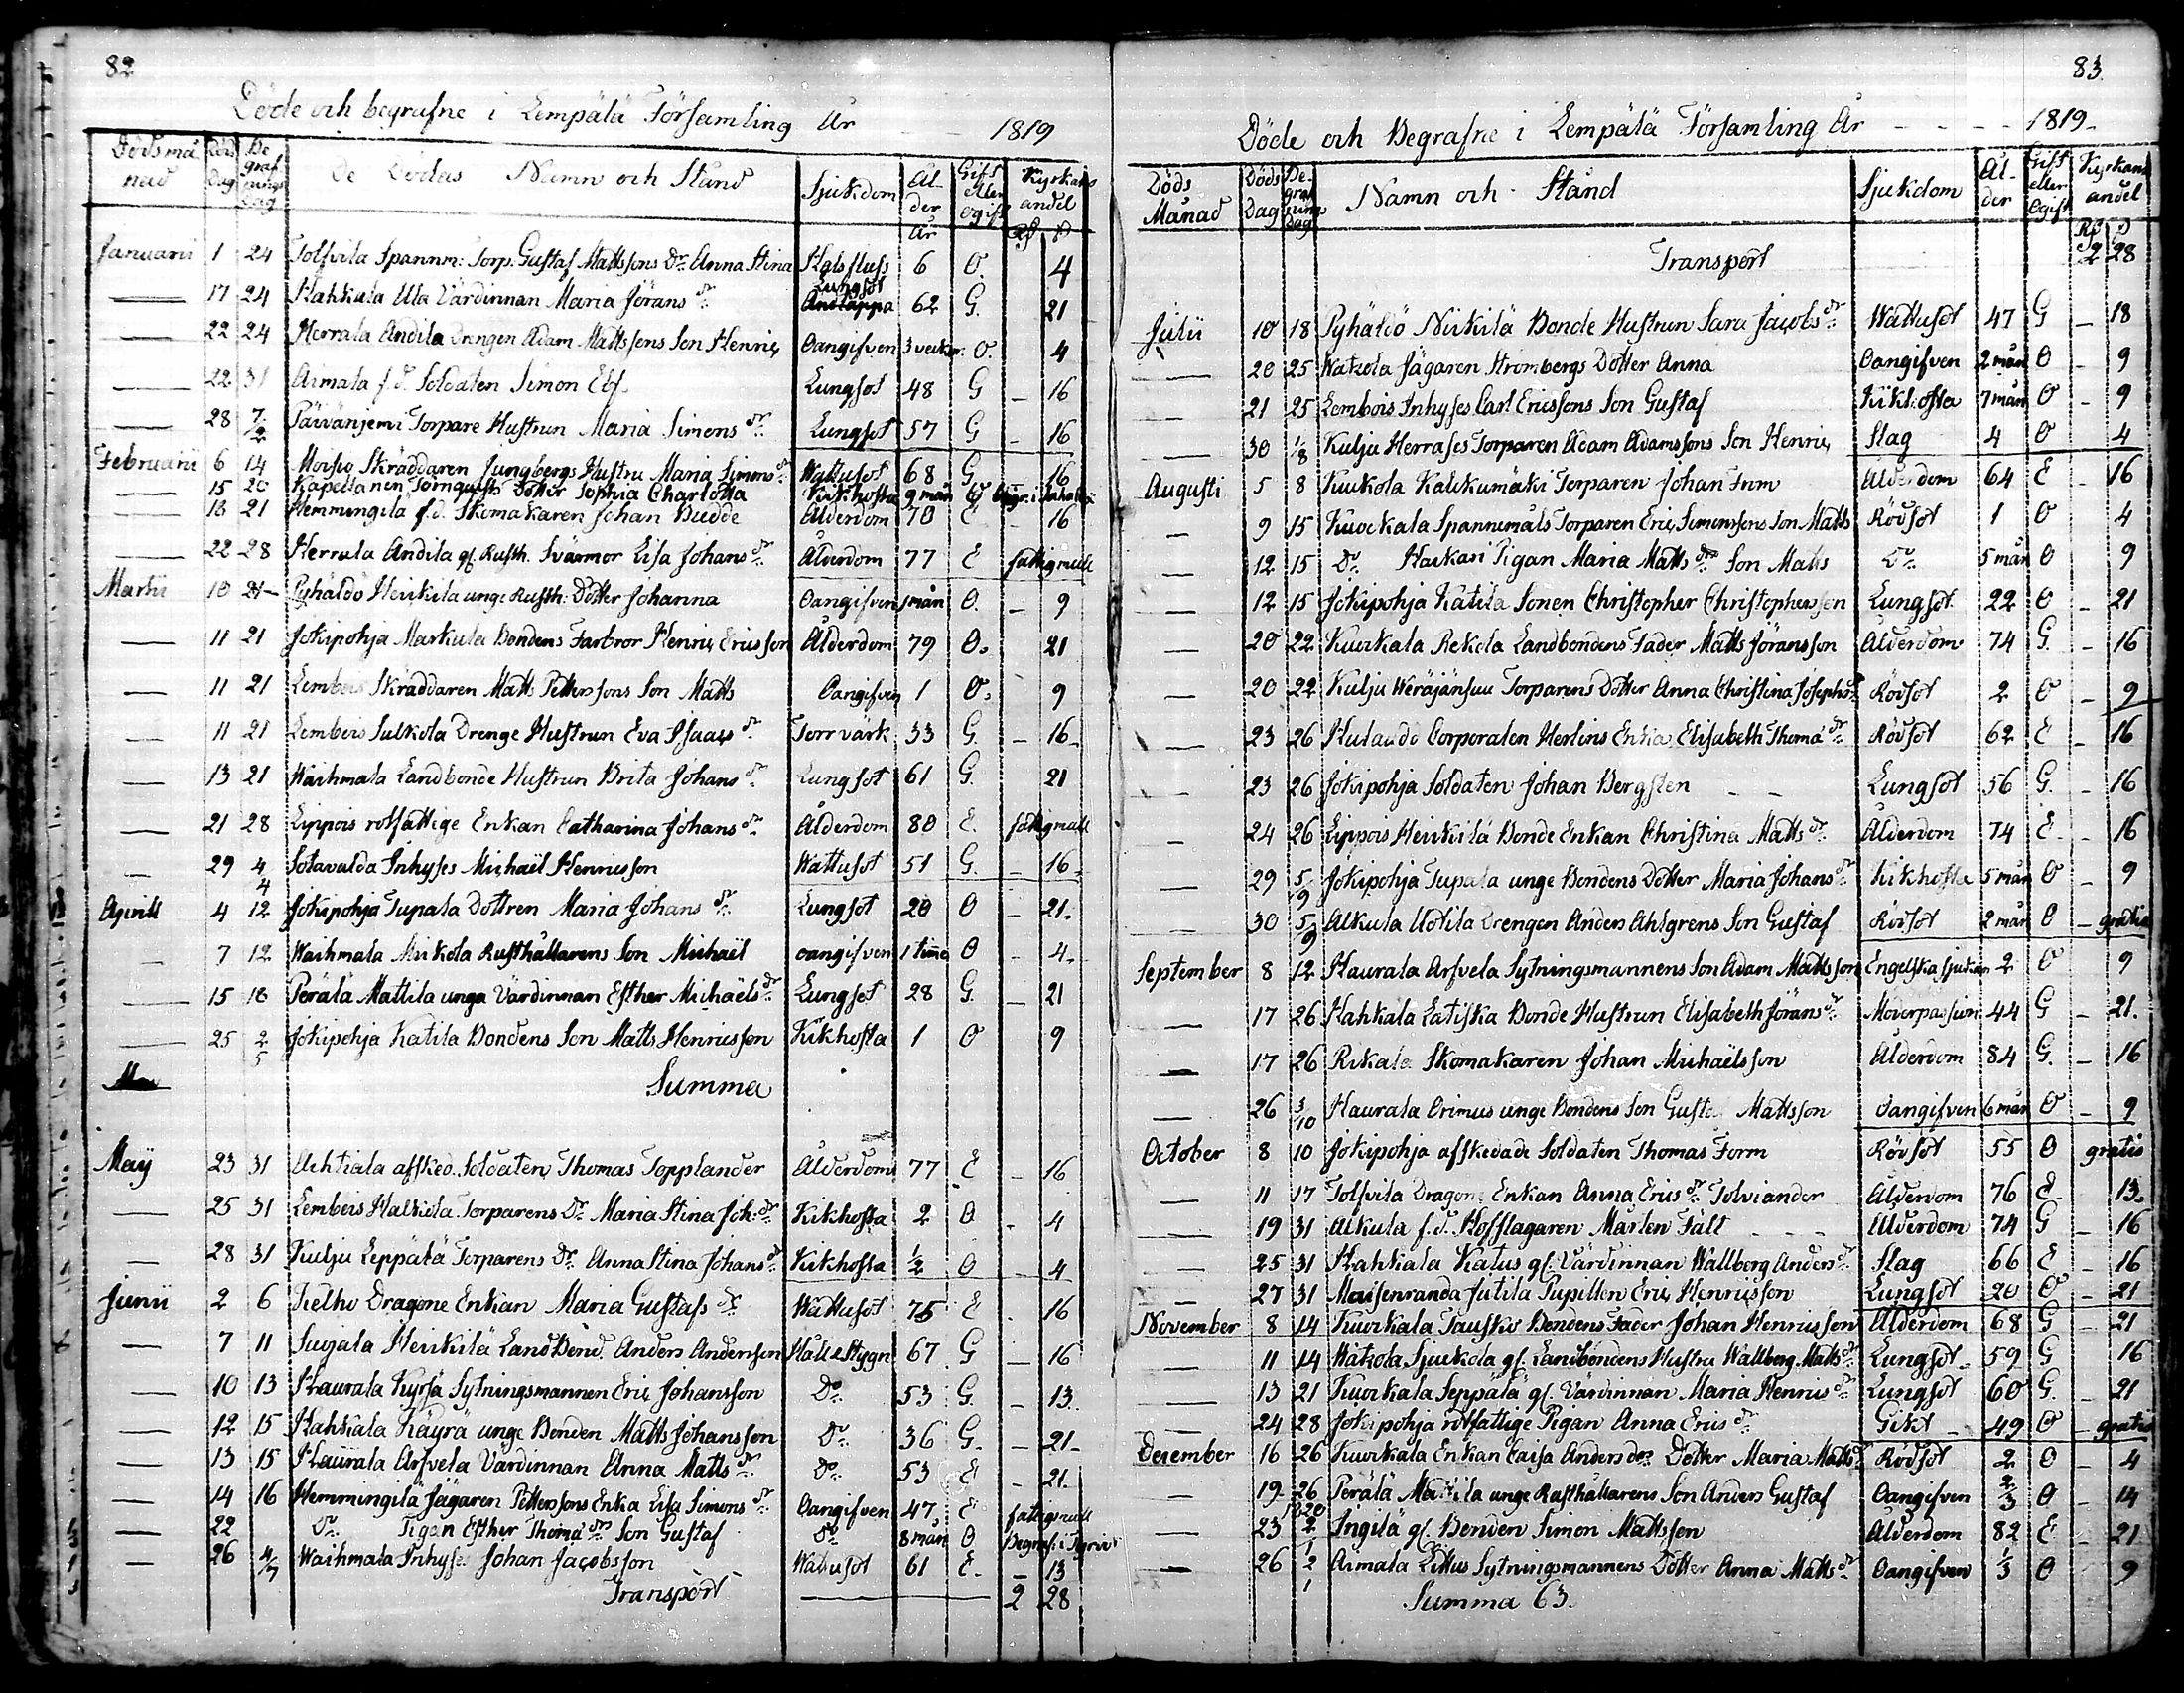 82
Döde och begrafne i Lempälä Församling År 1819
Dödsmånad Döds Dag Begrafnings dag De Dödas Namn och Stånd Sjukdom Ålder År Gift eller Ogift Kyrkans andel
Januarii 1 24 Tolfvila Spannm: Torp. Gustaf Mattssons Dr. Anna Stina Halsfluss 6 O. 4
17 24 Hahkala Ula Värdinnan Maria Jörans dr Lungsot 62 G. 21
22 24 Herrala Andila Drengen Adam Mattssons Son Henric Oangifven 3 veckor O. 4
22 31 Aimala f.d. Soldaten Simon Elf Lungsot 48 G – 16
28 7/2 Päivänjemi Torpare Hustrun Maria Simons dr. Lungsot 57 G – 16
Februarii 6 14 Moisio Skräddaren Ljungbergs Hustru Maria Simons dr Wattusot 68 G 16
15 20 Kapellanen Törnqvists Dotter Sophia Charlotta Kikhosta 9 mån O
18 21 Hemmingilä f.d. Skomakaren Johan Budde Ålderdom 70 E – 16
22 28 Herrala Andila gl. Rusth. Svärmor Lisa Johans dr Ålderdom 77 E fattig null
Martii 10 21 Pyhäldö Heikilä unge Rusth: Dotter Johanna Oangifven 1 mån O. – 9
11 21 Jokipohja Markula Bondens Farbror Henric Ericsson Ålderdom 79 O. 21
11 21 Lembois Skräddaren Matts Petterssons Son Matts Oangifven 1 O. 9
11 21 Lembois Sulkola Drenge Hustrun Eva Isaacs dr. Torrvärk 33 G. – 16
13 21 Waihmala Landbonde Hustrun Brita Johans dr. Lungsot 61 G. 21
21 28 Lippois rotfattige Enkan Catharina Johans dr Ålderdom 80 E. fattig null
29 4/4 Sotavalda Inhyses Michaël Henricsson Wattusot 51 G. – 16
Aprill 4 12 Jokipohja Tupala Dottren Maria Johans dr. Lungsot 20 O – 21
7 12 Waihmala Mikola Rusthållarens Son Michaël oangifven 1 timme O – 4
15 18 Perälä Mattila unga Värdinnan Esther Michaëls dr Lungsot 28 G. – 21
25 2/5 Jokipohja Katila Bondens Son Matts Henricsson Kikhosta 1 O 9
Summa
Maij 23 31 Achtiala afsked. Soldaten Thomas Topplander Ålderdom 77 E – 16
25 31 Lembois Halkola Torparens Dr. Maria Stina Joh: dr Kikhosta 2 O – 4
28 31 Kulju Leppälä Torparens Dr. Anna Stina Johans dr. Kikhosta ½ O – 4
Junii 2 6 Kelho Dragone Enkan Maria Gustafs dr. Wattusot 75 E 16
7 11 Sujala Heikilä LandBond. Anders Andersson Håll & Stygn 67 G – 16
10 13 Haurala Kyrsä Sytningsmannen Eric Johansson Do. 53 G. – 13
12 15 Hahkala Käyrä unge Bonden Matts Johansson Do. 36 G. – 21
13 15 Haurala Arfvela Värdinnan Anna Matts dr. Do. 53 E – 21
14 16 Hemmingilä Jägaren Petterssons Enka Lisa Simons dr. Oangifven 47 E fattig null
22 Do. Pigan Esther Thomæ drs Son Gustaf Do. 8 mån O
26 4/7 Waihmala Inhyses Johan Jacobsson Wattusot 61 E. – 13
Transport 2 28
83
Döde och Begrafne i Lempälä Församling År 1819
Döds Månad Döds Dag Begrafnings Dag Namn och Stånd Sjukdom Ålder Gift eller Ogift Kyrkans andel
Transport 2 28
Julii 10 18 Pyhäldö Niikilä Bonde Hustrun Sara Jacobs dr. Wattusot 47 G – 18
20 25 Wakola Jägaren Strömbergs Dotter Anna Oangifven 2 mån O – 9
21 25 Lembois Inhyses Carl Ericssons Son Gustaf Kikhosta 7 mån O – 9
30 1/8 Kulju Herrases Torparen Adam Adamssons Son Henric Slag 4 O 4
Augusti 5 8 Kuokola Torparen Johan Ålderdom 64 E – 16
9 15 Kuockala Spannemåls Torparen Eric Simonssons Son Matts Rödsot 1 O 4
12 15 Do. Harkasi Pigan Maria Matts drs Son Matts Do. 5 mån O 9
12 15 Jokipohja Katila Sonen Christopher Christophersson Lungsot 22 O – 21
20 22 Kuokala Rekola Landbondens Fader Matts Jöransson Ålderdom 74 G. – 16
20 22 Kulju Weräjänsuu Torparens Dotter Anna Christina Josephs dr Rödsot 2 O – 9
23 26 Corporalen Herlins Enka Elisabeth Thomæ dr. Rödsot 62 E – 16
23 26 Jokipohja Soldaten Johan Bergsten Lungsot 56 G. – 16
24 26 Lippois Heikilä Bonde Enkan Christina Matts dr. Ålderdom 74 E – 16
29 5/9 Jokipohja Tupala unge Bondens Dotter Maria Johans dr. Kikhosta 5 mån O – 9
30 5/9 Alkula Uotila Drengen Anders Ahlgrens Son Gustaf Rödsot 2 mån O – gratis
September 8 12 Haurala Arfvela Sytningsmannens Son Adam Mattsson Engelska sjukan 2 O 9
17 26 Hahkala Latiska Bonde Hustrun Elisabeth Jörans dr Moderpassion 44 G – 21.
17 26 Rikala Skomakaren Johan Michaëlsson Ålderdom 84 G. – 16
26 3/10 Haurala Orimus unge Bondens Son Gustaf Mattsson Oangifven 6 mån O – 9
October 8 10 Jokipohja afskedade Soldaten Thomas Form Rödsot 55 O gratis
11 17 Tolfvila Dragone Enkan Anna Erics dr. Tolviander Ålderdom 76 E – 13.
19 31 Alkula f.d. Hofslagaren Mårten Fält Ålderdom 74 G – 16
25 31 Hahkala Katus gl. Värdinnan Wallborg Anders dr Slag 66 E – 16
27 31 Maisenranda Jutila Pupillen Eric Henricsson Lungsot 20 O – 21
November 8 14 Kuokala Tausko Bondens Fader Johan Henricsson Ålderdom 68 G – 21
11 14 Wakola Sjukola gl. Landbondens Hustru Wallborg Matts dr Lungsot 59 G 16
13 21 Kuokala Seppälä gl. Värdinnan Maria Henrics dr. Lungsot 60 G. – 21
24 28 Jokipohja rotfattige Pigan Anna Erics dr. Gikt 49 O – gratis
December 16 26 Kuokala Enkan Caisa Anders drs Dotter Maria Matts dr Rödsot 2 O – 4
19 26 Perälä Mattila unge Rusthållarens Son Anders Gustaf Oangifven 2/3 O – 14
1820
23 2/1 Ingilä gl. Bonden Simon Mattsson Ålderdom 82 E – 21
26 2/1 Aimala Lettus Sytningsmannens Dotter Anna Matts dr. Oangifven 1/3 O 9
Summa 63.